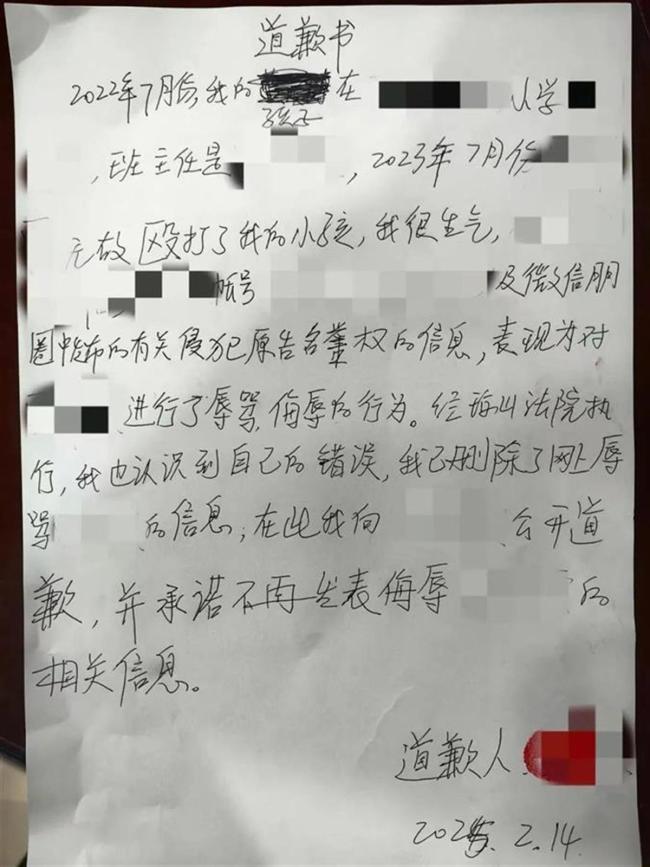 道歉书
2022年7月份，我的在小学
孩子
，班主任是，2023年7月份
无故殴打了我的小孩，我很生气，
帐号及微信朋
圈中发布的有关侵犯原告名誉权的信息，表现为对
进行了辱骂，侮辱的行为。经梅山法院执
行，我也认识到自己的错误，我已删除了网上辱
骂的信息，在此我向公开道
歉，并承诺不再发表侮辱的
相关信息。
道歉人
2025.2.14